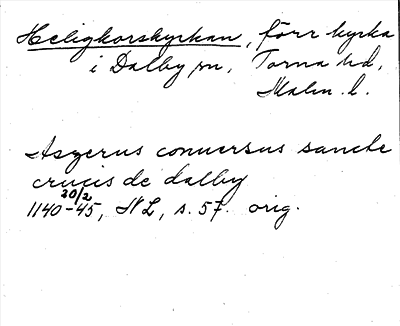 Heligkorskyrkan, förr kyrka
i Dalby sn, Torna hd,
Malm. l.
Asgerus conuersus sancte
crucis de dalby
20/2
1140-45, NL, s. 57. orig.